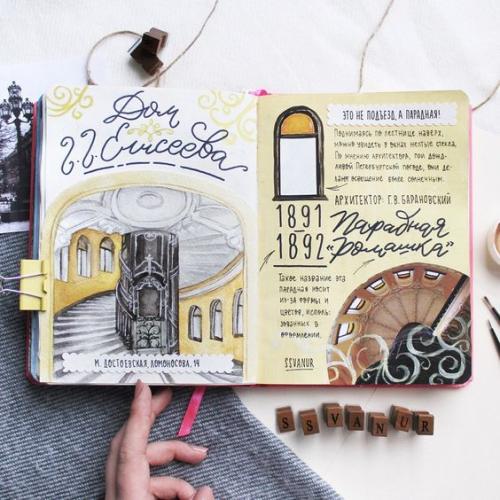 Дом
Г.Г. Елисеева
М. ДОСТОЕВСКАЯ, ЛОМОНОСОВА, 14
ЭТО НЕ ПОДЪЕЗД, А ПАРАДНАЯ!
ПОДНИМАЯСЬ ПО ЛЕСТНИЦЕ НАВЕРХ,
МОЖНО УВИДЕТЬ В ОКНАХ ЖЕЛТЫЕ СТЕКЛА.
ПО МНЕНИЮ АРХИТЕКТОРА, ПРИ ДОЖД-
ЛИВОЙ ПЕТЕРБУРГСКОЙ ПОГОДЕ, ОНИ ДЕ-
ЛАЛИ ОСВЕЩЕНИЕ БОЛЕЕ СОЛНЕЧНЫМ.
АРХИТЕКТОР: Г.В. БАРАНОВСКИЙ
1891
1892
Парадная
"Ромашка"
ТАКОЕ НАЗВАНИЕ ЭТА
ПАРАДНАЯ НОСИТ
ИЗ-ЗА ФОРМЫ И
ЦВЕТОВ, ИСПОЛЬ-
ЗОВАННЫХ В
ОФОРМЛЕНИИ.
SSVANUR
SSVANUR